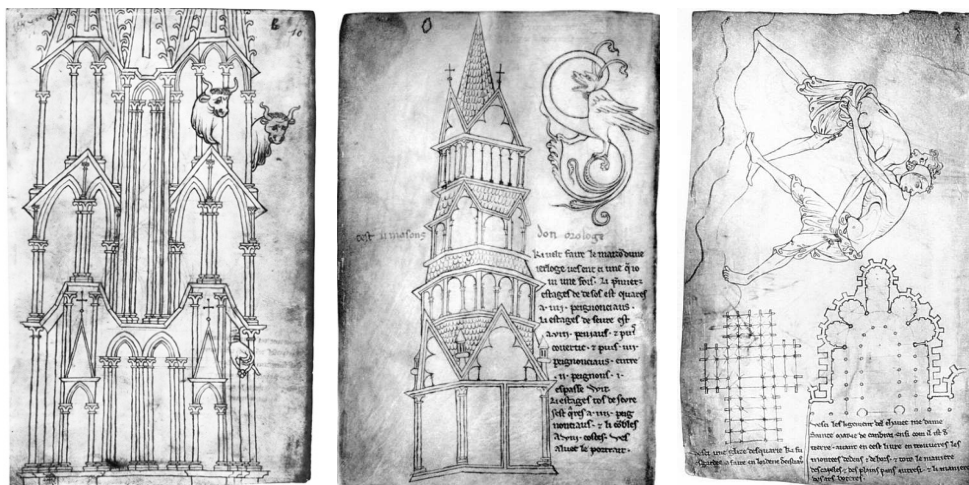 10
cest li masons don orologe
Ki velt faire le maizo dune
ierloge ves ent ci une q io
vi une fois. Li prumiers
estages de desos est quares
a .iiij. peignonciaus.
Li estages deseure est
a .viij. peniaus & puis
covertic. & puis .iiij.
peignonciaus. entre
.ij. peignons .i.
espasse wit.
Li estages tos deseure
sest q̃res a .iiij. peig
nonciaus. & li cobles
a viij. costes. Ves
aluec le portrait.
vesci une glize desquarie ki fu
esgardee a faire en lordene de
Vesci le ligement del chavec me dame
sainte marie de canbrai ensi com il est
tierre. avant en cest livre en troveres les
montees dedens & dehors. & tote le maniere
des capeles & des plains pans autresi. & li maniere
des ars boteres.